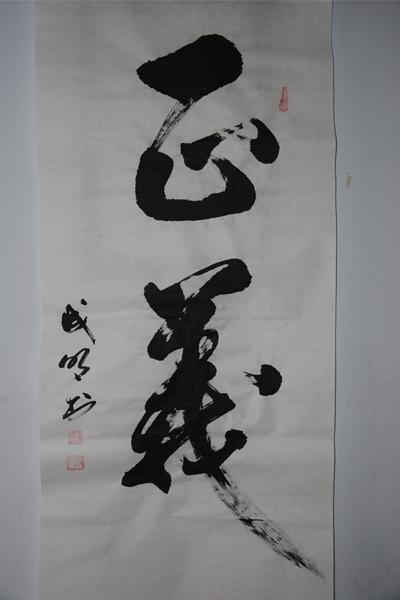 正義
成明书